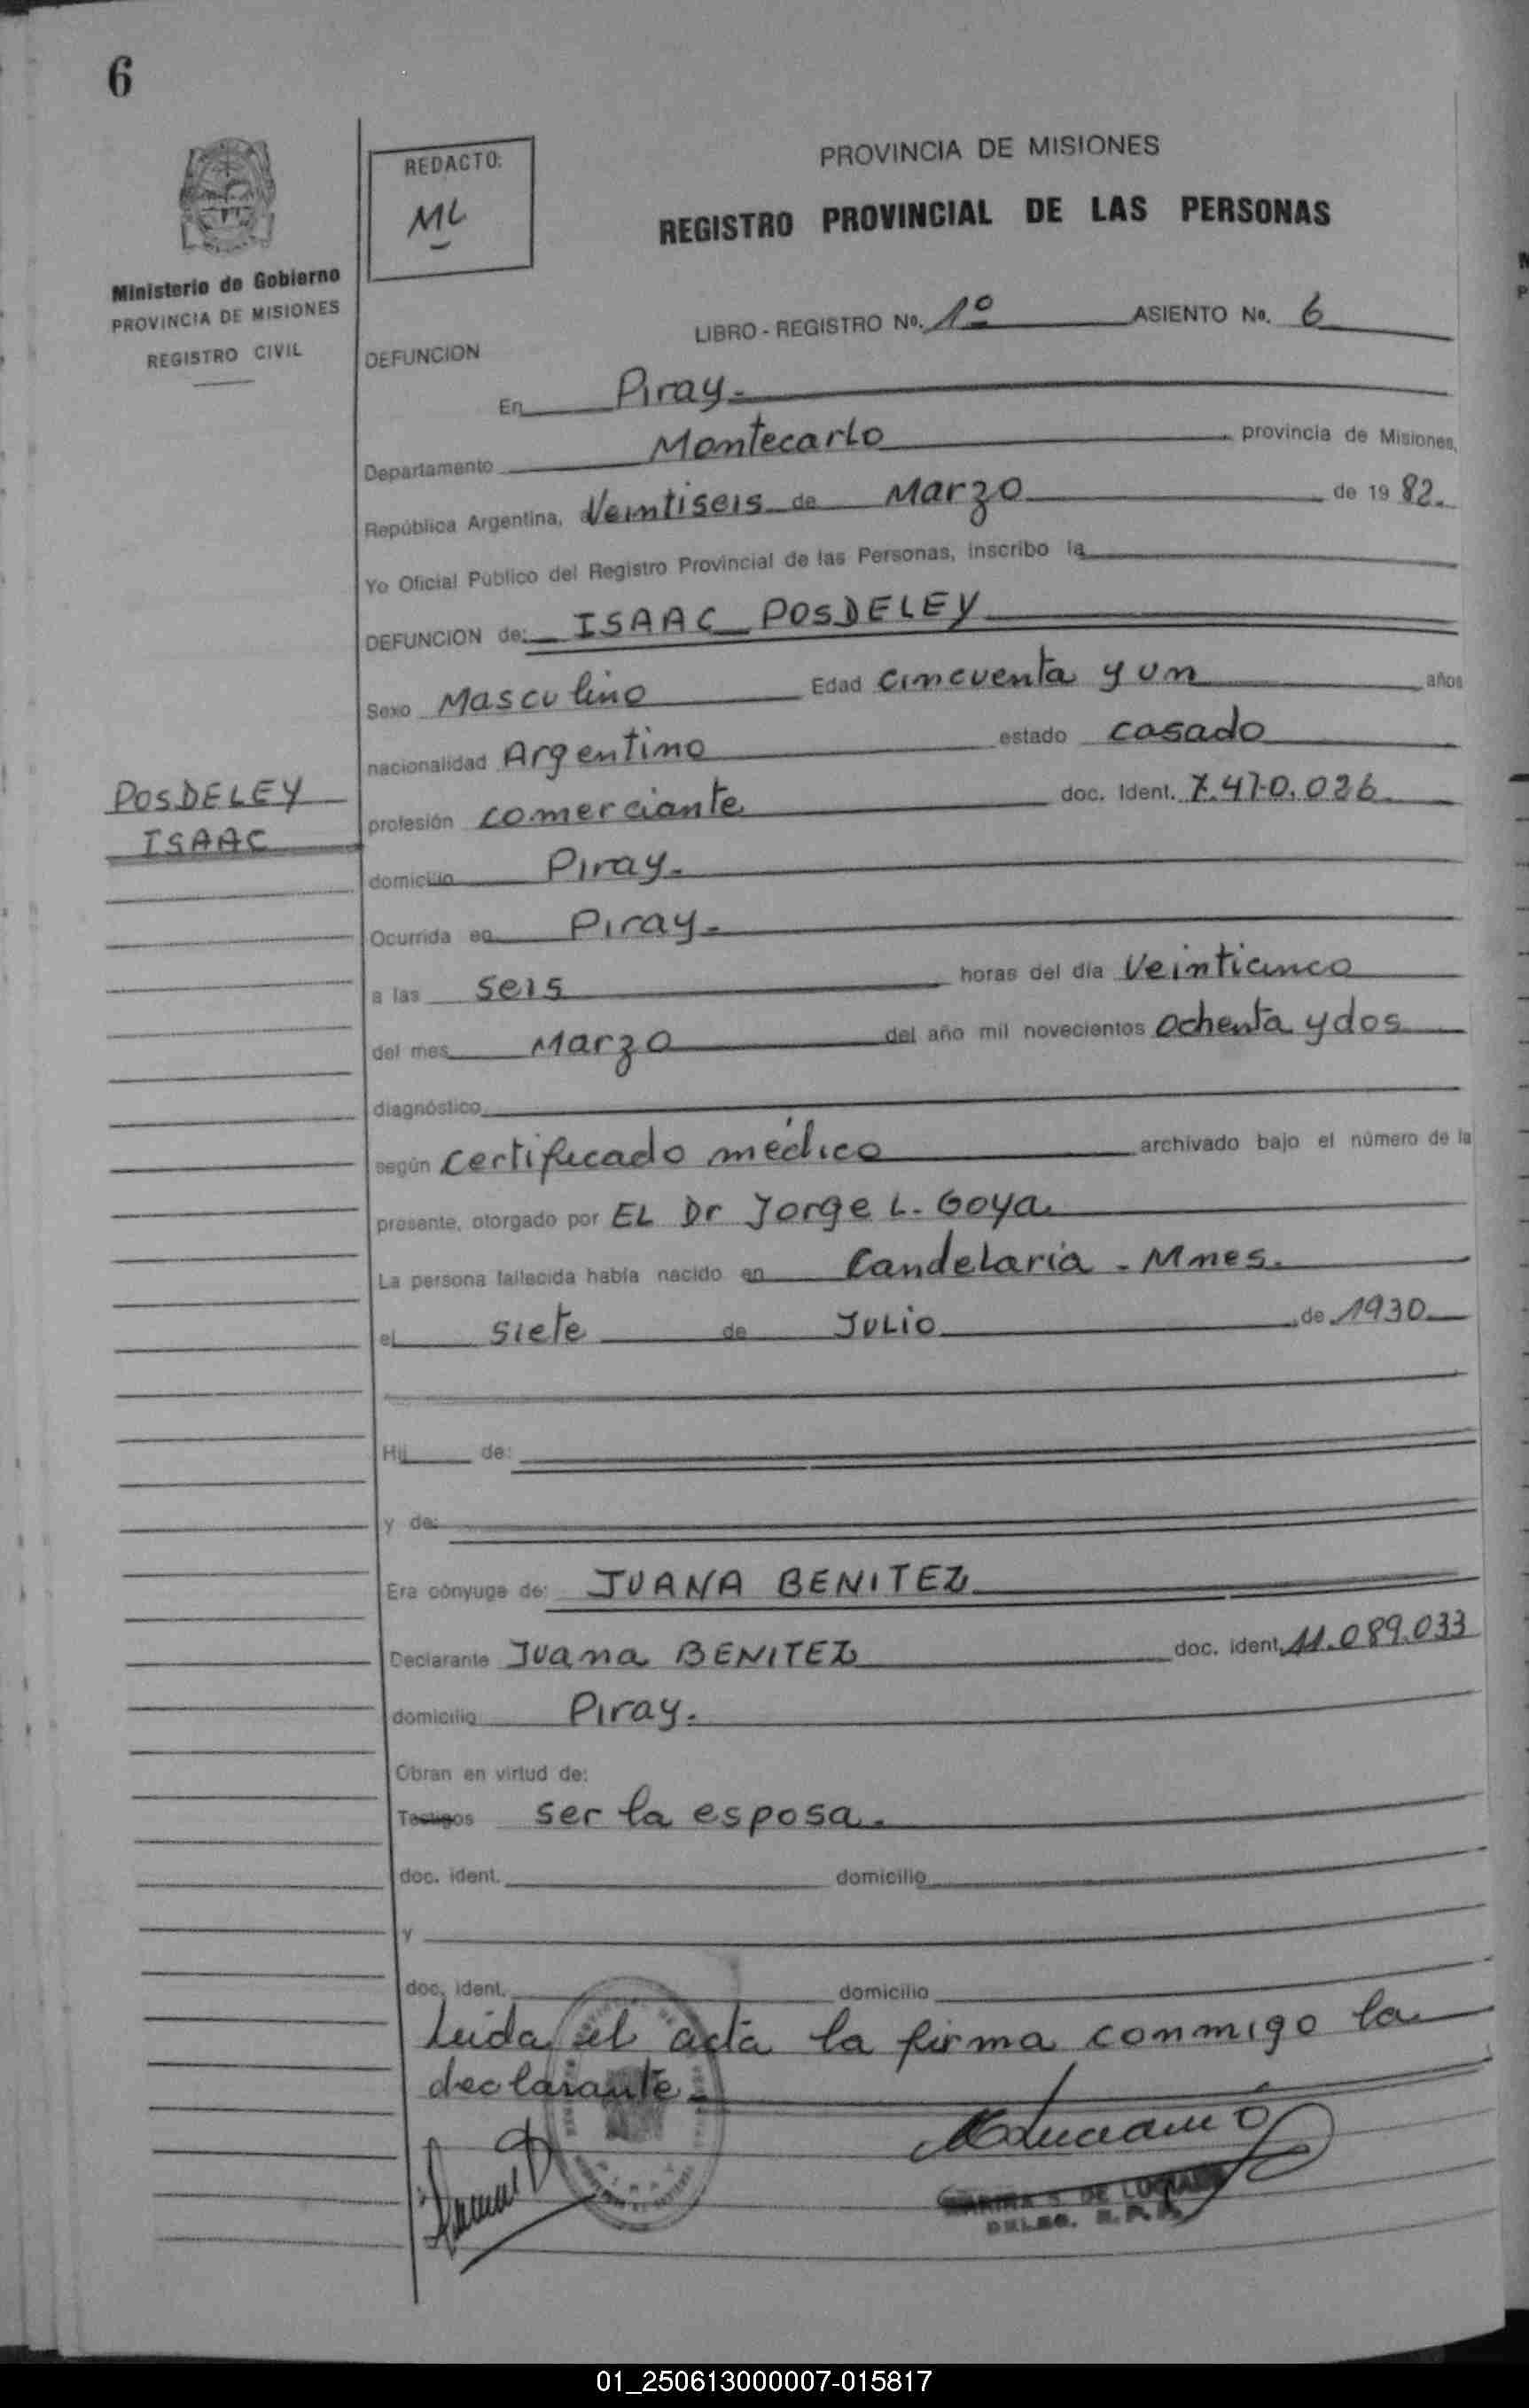 6
REDACTO:
ML
Ministerio de Gobierno
PROVINCIA DE MISIONES
REGISTRO CIVIL
PROVINCIA DE MISIONES
REGISTRO PROVINCIAL DE LAS PERSONAS
LIBRO - REGISTRO No. 1º ASIENTO No. 6
DEFUNCION
En Piray.
Departamento Montecarlo provincia de Misiones,
República Argentina, Veintiseis de Marzo de 19 82.
Yo Oficial Público del Registro Provincial de las Personas, inscribo la
DEFUNCION de: ISAAC POSDELEY
Sexo Masculino Edad cincuenta y un años
nacionalidad Argentino estado casado
POSDELEY
ISAAC
profesión comerciante doc. Ident. 7.470.026
domicilio Piray.
Ocurrida en Piray.
a las seis horas del día Veinticinco
del mes Marzo del año mil novecientos ochenta y dos
diagnóstico
según certificado médico archivado bajo el número de la
presente, otorgado por EL Dr Jorge L. Goya
La persona fallecida había nacido en Candelaria - Mnes.
el siete de JULIO de 1930
Hij de:
y de:
Era cónyuge de: JUANA BENITEZ
Declarante Juana BENITEZ doc. ident. 11.089.033
domicilio Piray.
Obran en virtud de:
Testigos ser la esposa.
doc. ident. domicilio
y
doc. ident. domicilio
Leida el acta la firma conmigo la
declarante
DE
DELEG. R.P.P.
01_250613000007-015817